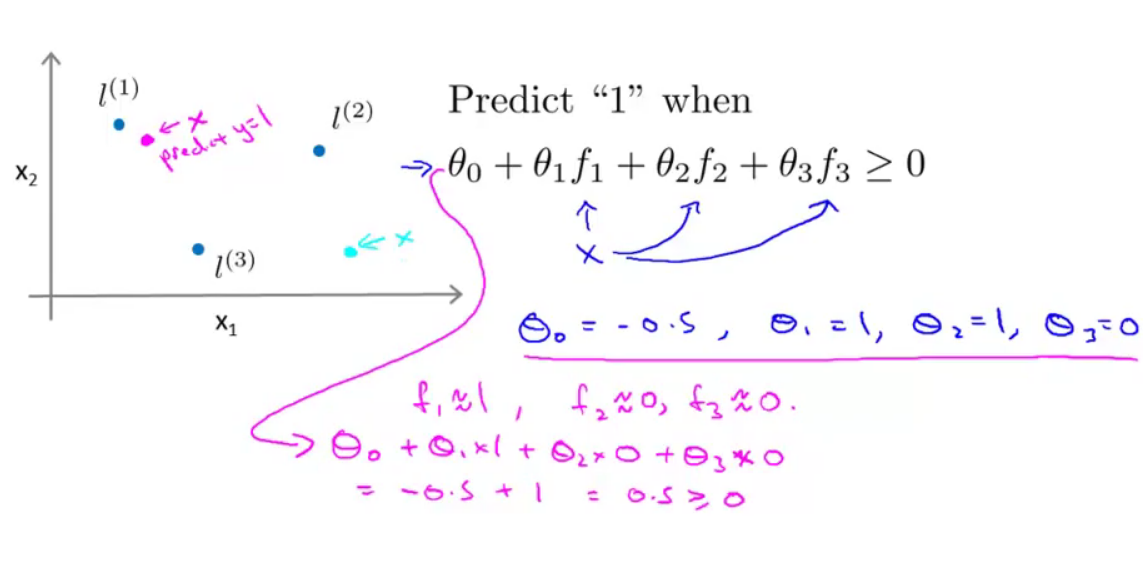 l^{(1)}
← x
predict y=1
l^{(2)}
x₂
← x
l^{(3)}
x₁
Predict “1” when
→ θ₀ + θ₁f₁ + θ₂f₂ + θ₃f₃ ≥ 0
x
θ₀ = -0.5, θ₁ = 1, θ₂ = 1, θ₃ = 0
f₁ ≈ 1, f₂ ≈ 0, f₃ ≈ 0.
θ₀ + θ₁×1 + θ₂×0 + θ₃×0
= -0.5 + 1 = 0.5 ≥ 0